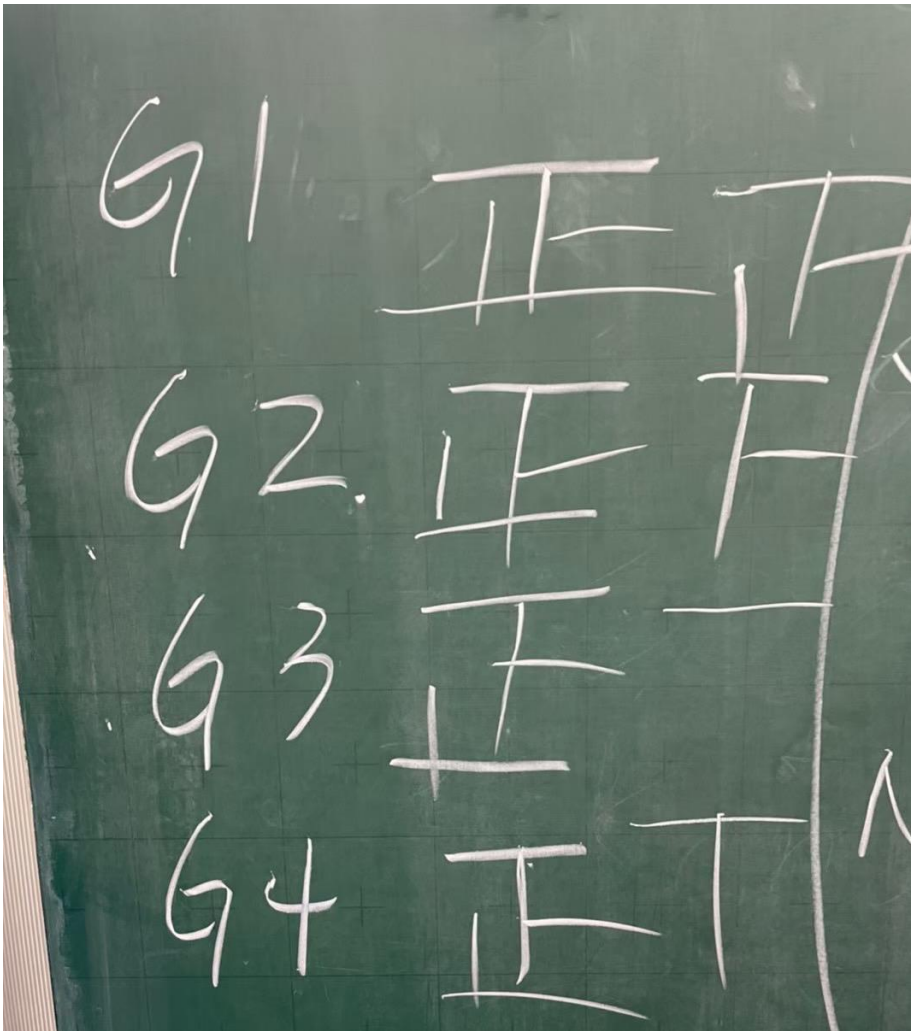 G1 正
G2. 正 下
G3 正 一
G4 正 丅